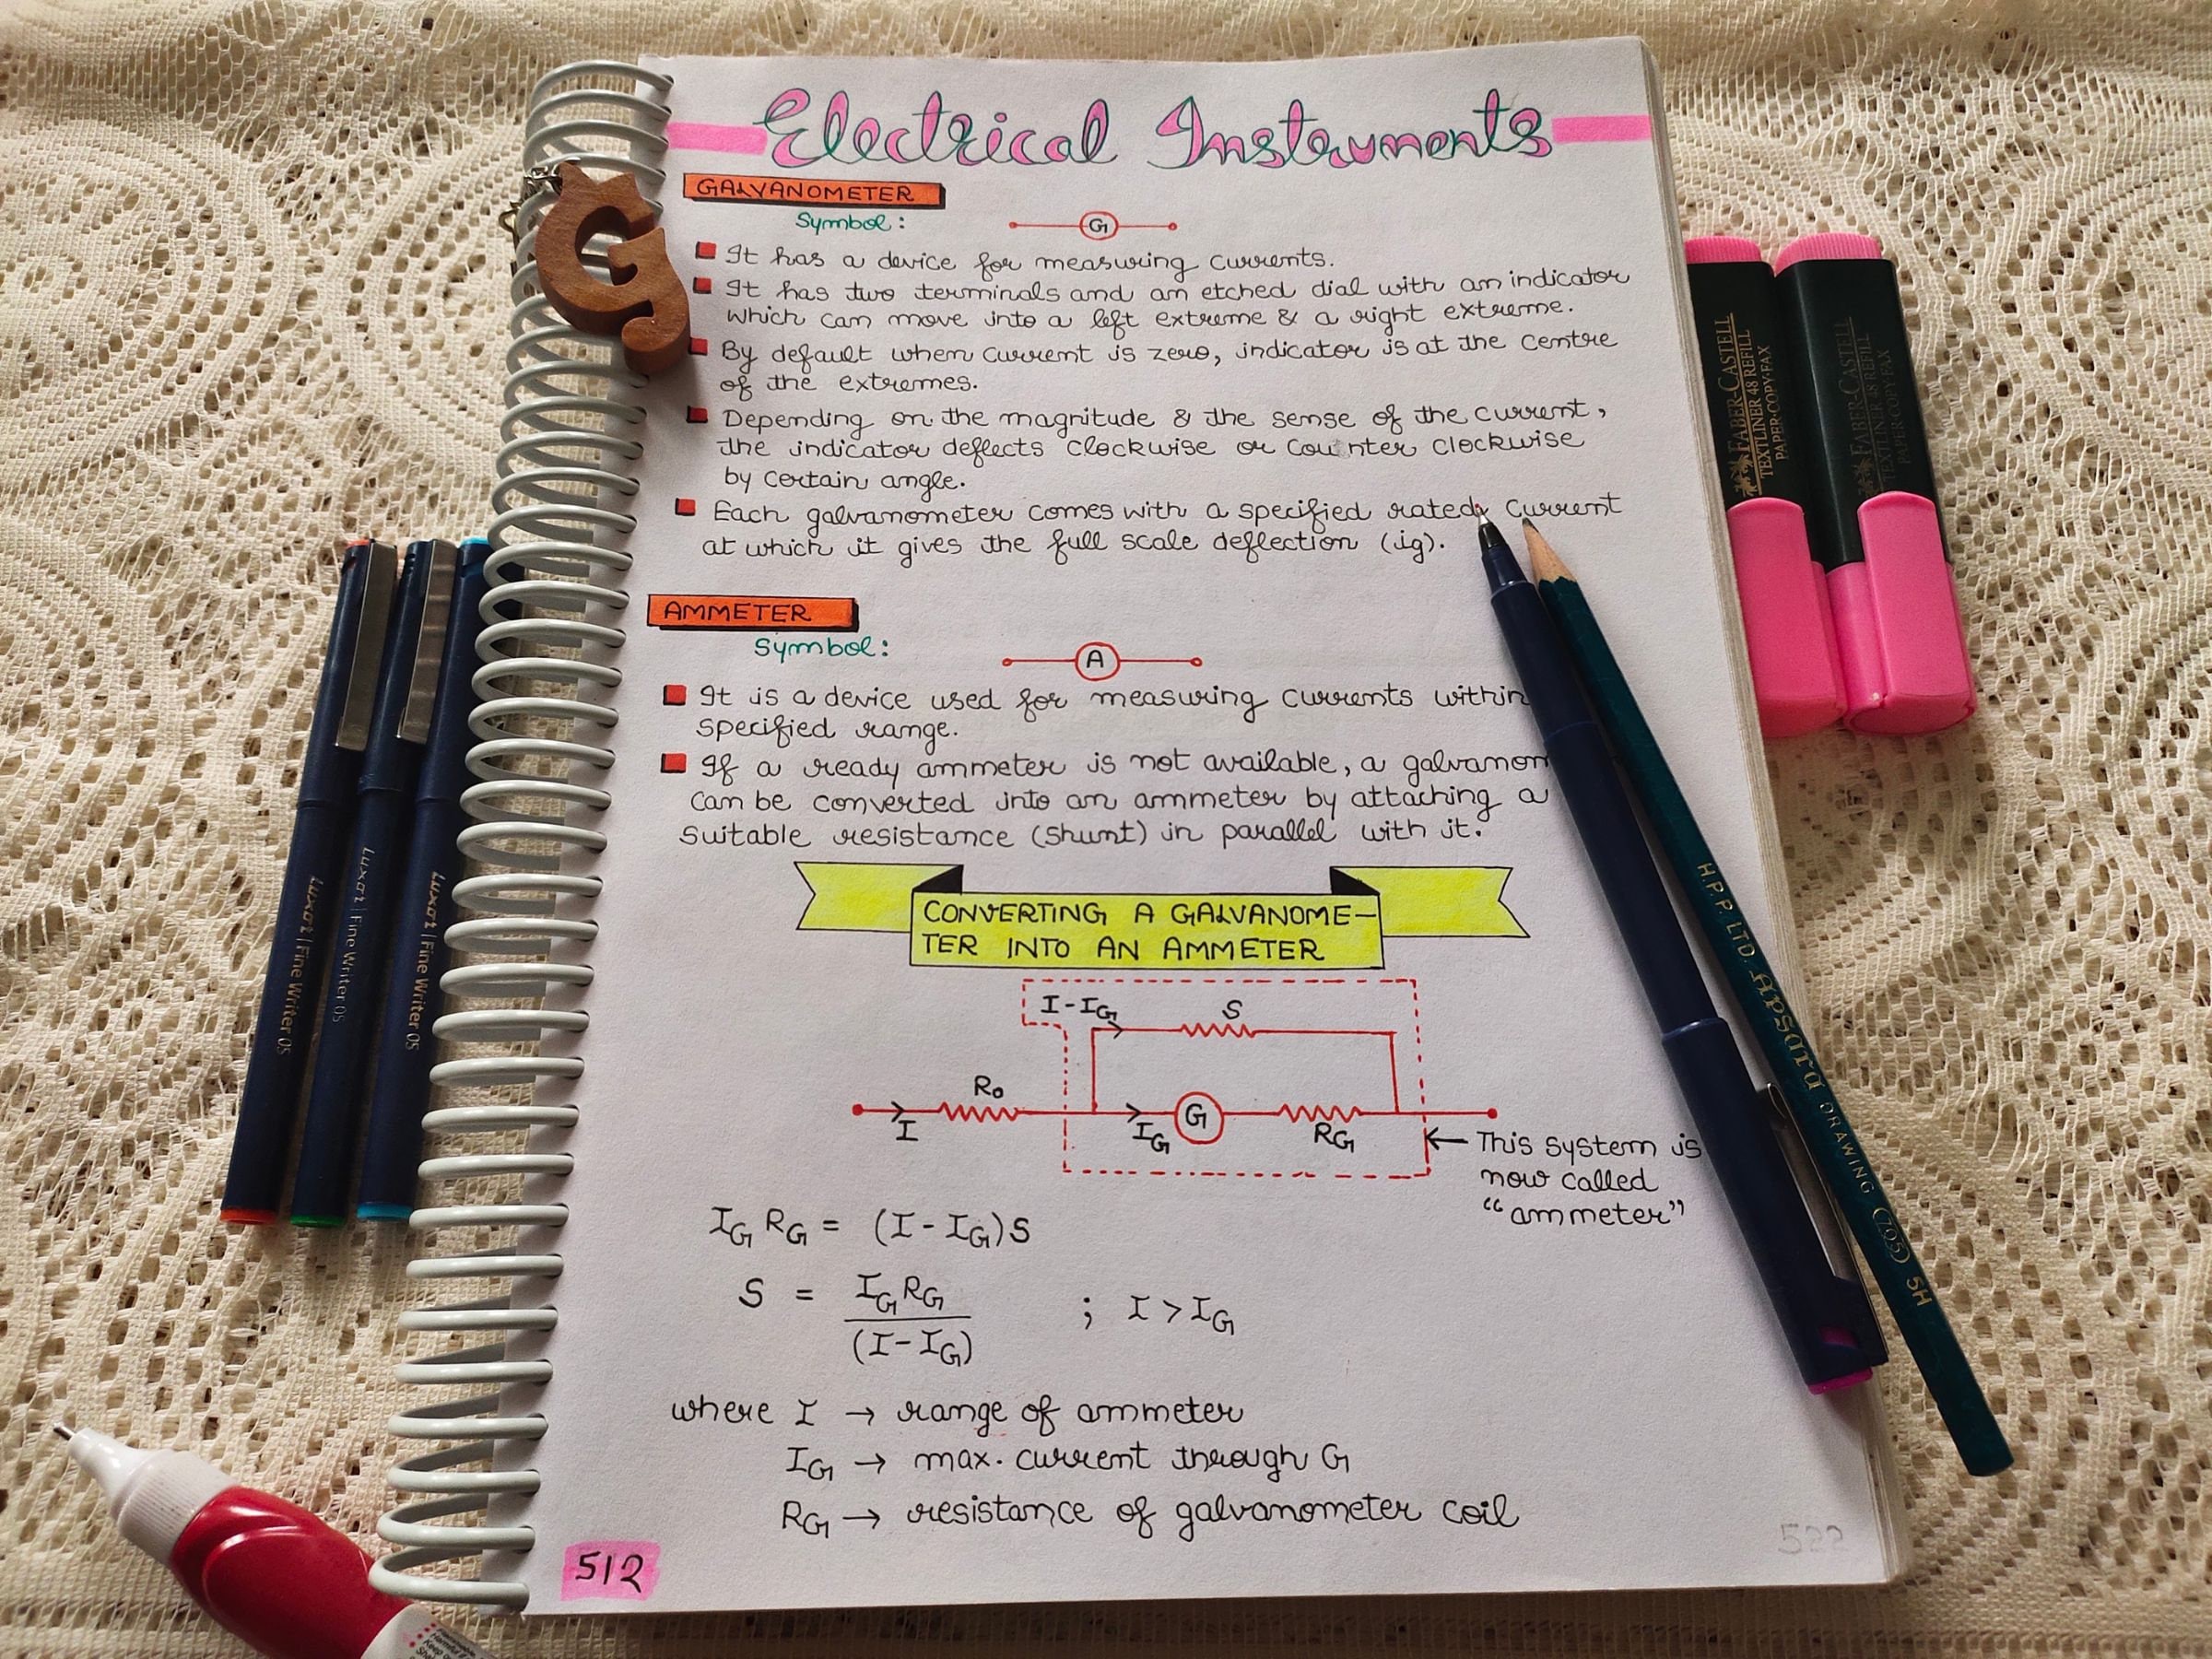 Electrical Instruments
GALVANOMETER
Symbol:
G
It has a device for measuring currents.
It has two terminals and an etched dial with an indicator
which can move into a left extreme & a right extreme.
By default when current is zero, indicator is at the centre
of the extremes.
Depending on the magnitude & the sense of the current,
the indicator deflects clockwise or counter clockwise
by certain angle.
Each galvanometer comes with a specified rated current
at which it gives the full scale deflection (ig).
AMMETER
Symbol:
A
It is a device used for measuring currents within
specified range.
If a ready ammeter is not available, a galvanom
can be converted into an ammeter by attaching a
suitable resistance (shunt) in parallel with it.
CONVERTING A GALVANOME-
TER INTO AN AMMETER
I-IG
S
R0
I
IG
G
RG
This system is
now called
"ammeter"
IG RG = (I-IG)S
S = IG RG / (I-IG) ; I > IG
where I → range of ammeter
IG → max. current through G
RG → resistance of galvanometer coil
512
522
G
FABER-CASTELL
TEXTLINER 48 REFILL
PAPER·COPY·FAX
FABER-CASTELL
TEXTLINER 48 REFILL
PAPER·COPY·FAX
Luxor | Fine Writer 05
Luxor | Fine Writer 05
Luxor | Fine Writer 05
H.P.P. LTD. Apsara DRAWING (705) 5H